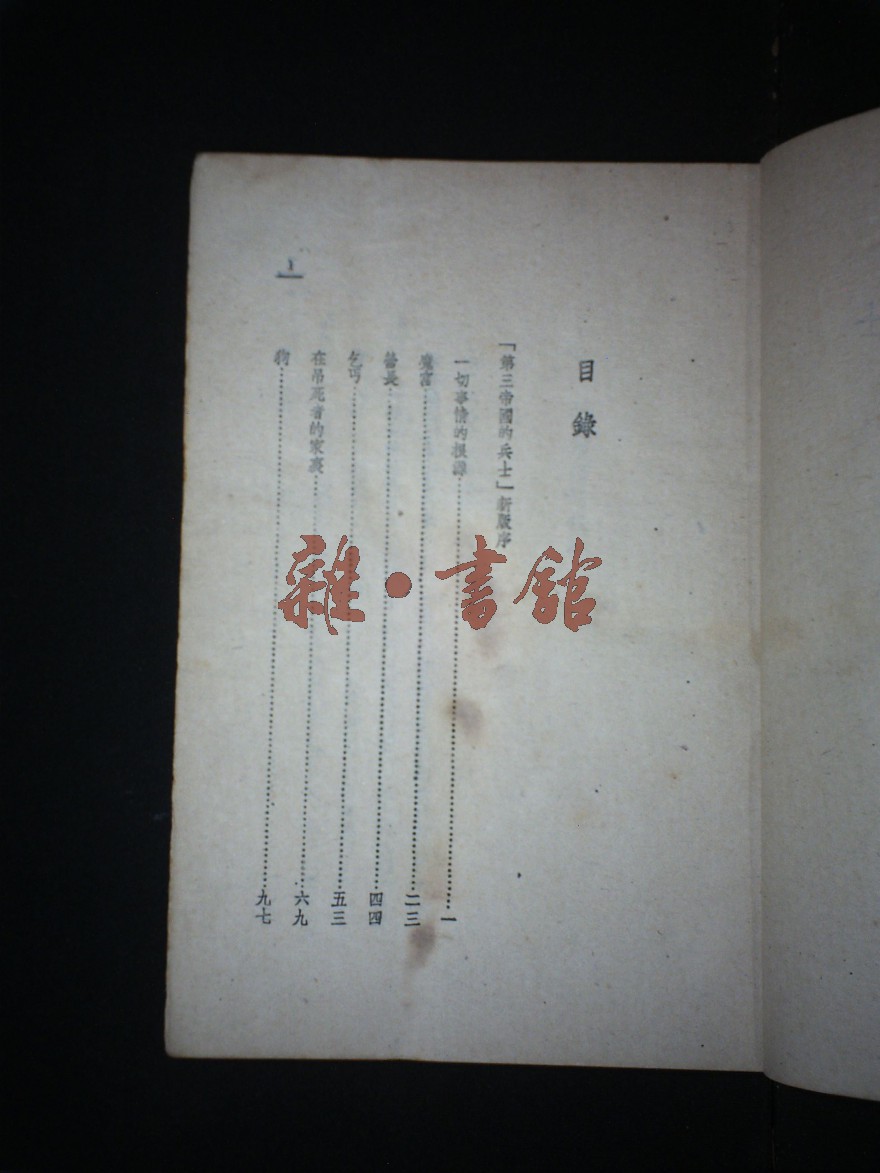 目錄
「第三帝國的兵士」新版序
一切事情的根源……一
魔宮……二三
營長……四四
乞丐……五三
在吊死者的家裏……六九
狗……九七
1
雜·書館